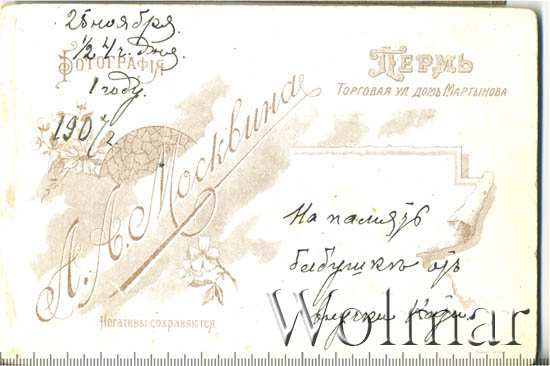 25 ноября.
1/2 4 ч. дня.
Фотографія
1 году.
1907 г.
Пермь
Торговая ул. домъ Мартынова
А. А. Москвина
На память
бабушкѣ отъ
внучки
Негативы сохраняются
Wolmar